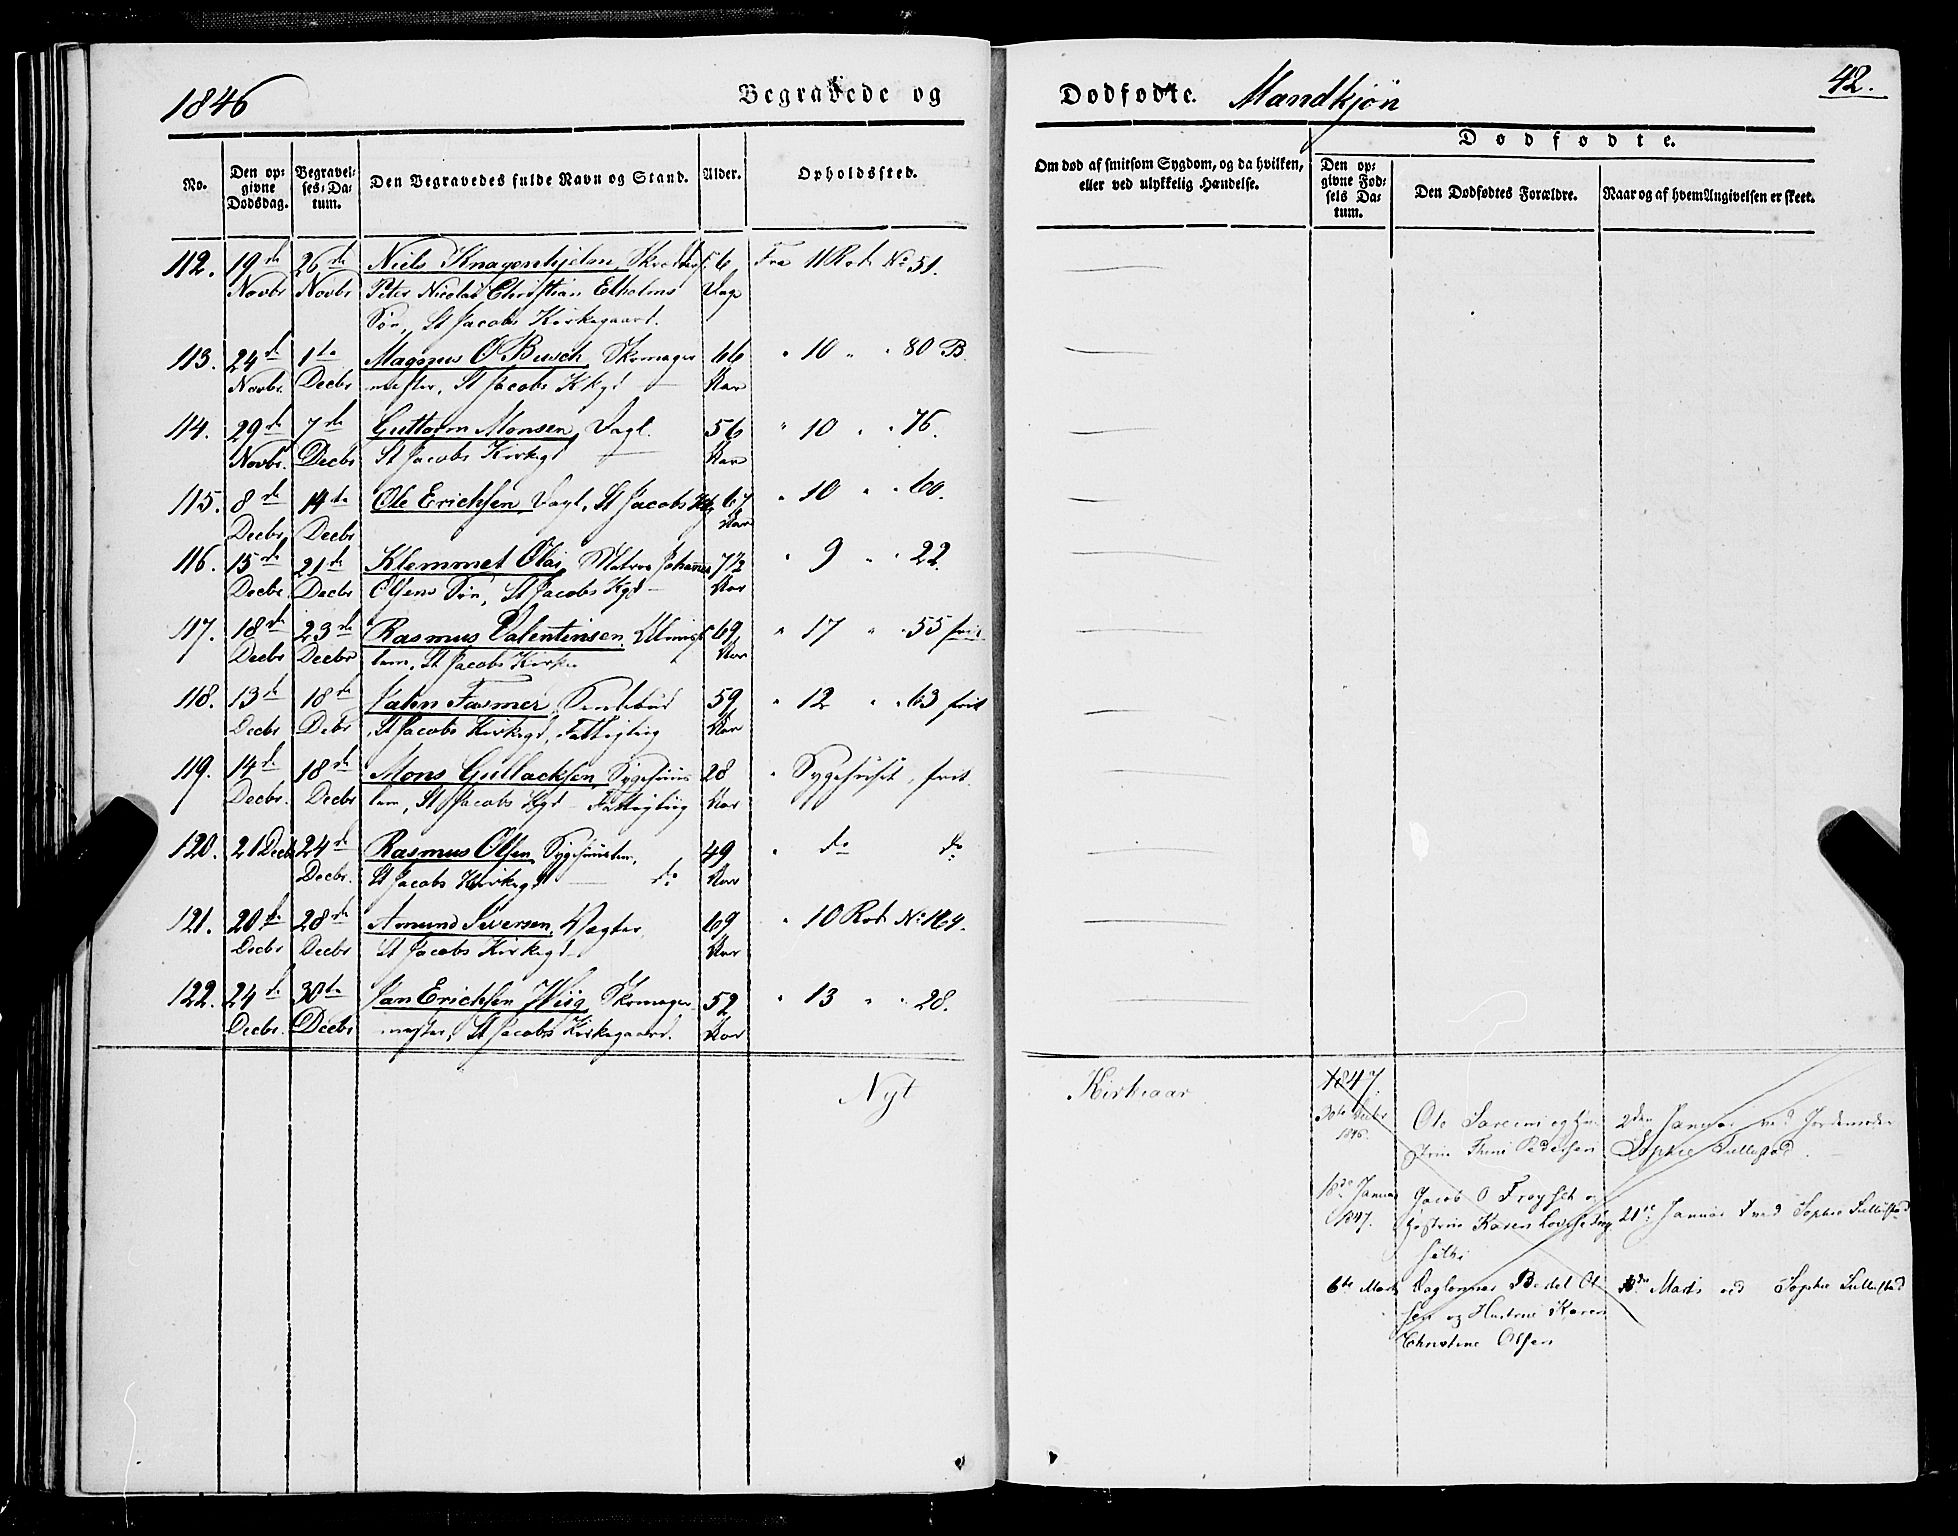 1846
Begravede og
Dødfødte. Mandkjøn
42.
No.
Den opgivne Dødsdag.
Begravelses-Datum.
Den Begravedes fulde Navn og Stand.
Alder.
Opholdssted.
Om død af smitsom Sygdom, og da hvilken, eller ved ulykkelig Hændelse.
Dødfødte.
Den opgivne Fødsels Datum.
Den Dødfødtes Forældre.
Naar og af hvem Angivelsen er skeet.
112. 19de 26de Niels Knagenhjelm, 56 Fra 11 Rode No 51.
Novbr Novbr Peter Nicolai Christian Dage
Søn, St Jacobs Kirkegaard.
113. 24de 1te Magnus O Busch, Skomager 66 " 10 " " 80 B.
Novbr. Decbr mester, St Jacobs Kkgd Aar
114. 29de 7de Guttorm Monsen, Dagl. 56 " 10 " " 76.
Novbr. Decbr St Jacobs Kirkegd Aar
115. 8de 14de Ole Erichsen, Dagl, St Jacobs 67 " 10 " " 60.
Decbr Decbr Aar
116. 15de 21de Klemmet Olai, Matros Johannes 7½ " 9 " " 22.
Decbr Decbr Olsens Søn, St Jacobs Kgd Aar
117. 18de 23de Rasmus Valentinsen, 69 " 17 " " 55 frit
Decbr Decbr lem, St Jacobs Kirke Aar
118. 13de 18de Fasmer, 59 " 12 " " 63 frit
Decbr Debr St Jacobs Kirkegd, Fattiglig Aar
119. 14de 18de Mons Gullachsen, Sygehuus 28 " Sygehuset, frit.
Decbr. Decbr lem, St Jacobs Kgd Fattiglig Aar
120. 21 Decb 24de Rasmus Olsen, 49 " do do
Decbr. St Jacobs Kirkegd do Aar
121. 20de 28de Amund Siversen, Vægter, 69 " 10 Rode No 164.
Decbr Decbr St Jacobs Kirkegd Aar
122. 24de 30te Jan Erichsen Wiig, Skomager 52 " 13 " " 28.
Decbr. Decbr mester, St Jacobs Kirkegaard. Aar
Nyt Kirkeaar 1847.
30te Decbr Ole og Hu- 2den Januar ved Jordemoder
1846. strue Pedersen Sophie
18de Januar Jacob O og
1847. Hustrue Karen 21de Januar ved Sophie
6te Marts Daglønner Ol- Marts ved Sophie
sen og Hustrue Karen
Christine Olsen